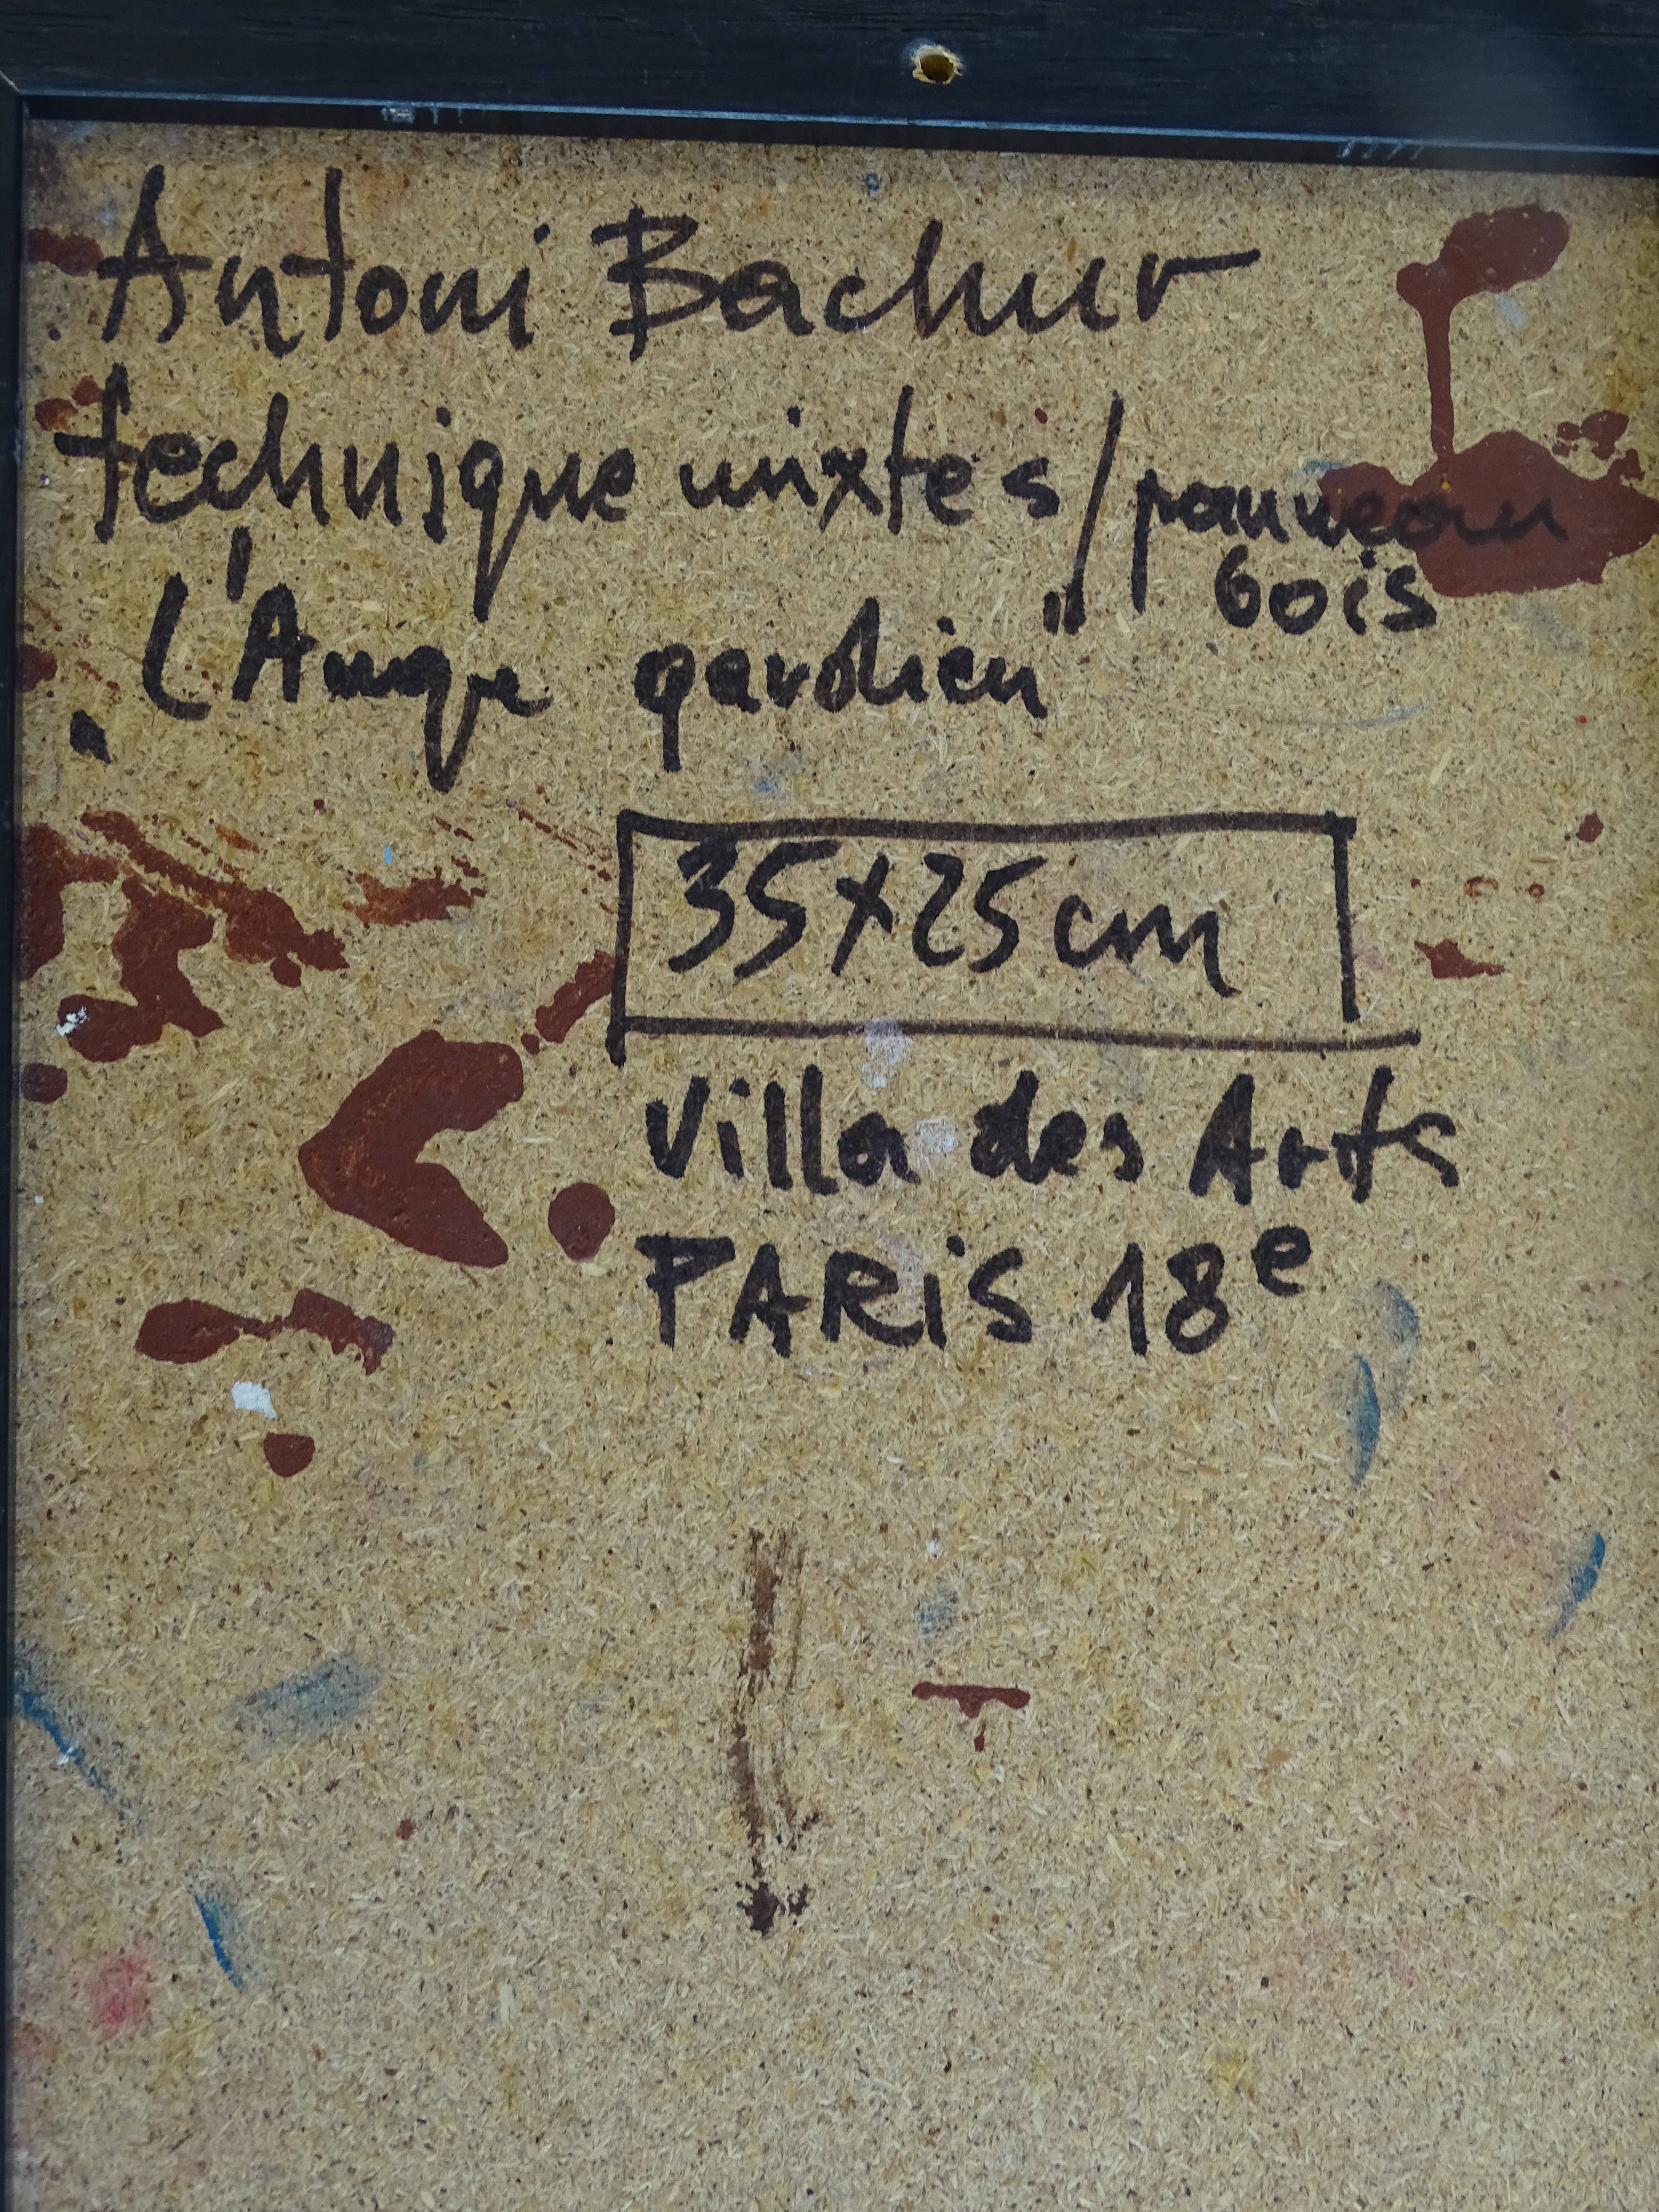 Antoni Bachur
technique mixtes/panneau
bois
„L'Ange gardien"
35x25cm
Villa des Arts
PARiS 18e